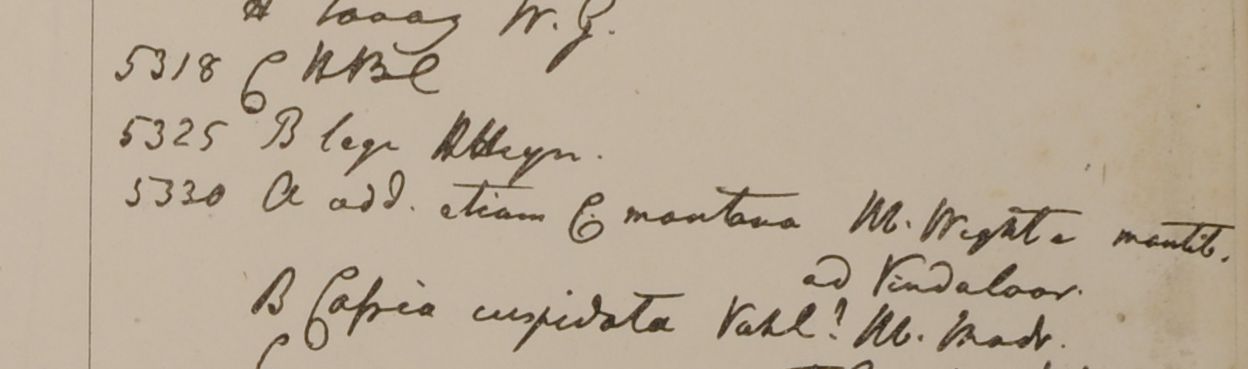 W. G.
5318 C HBC
5325 B lege HHeyn.
5330 A add. etiam C. montana M. Wight e montib.
ad Vindaloor.
B Cassia cuspidata Vahl? M. Madr.